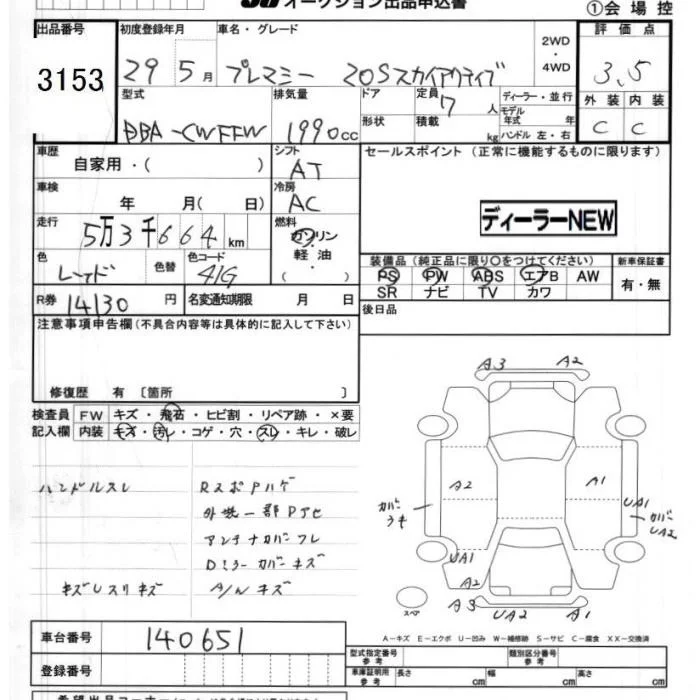 オークション出品申込書
①会場控
出品番号 初度登録年月 車名・グレード 2WD・4WD 評価点
3153 29 5月 プレマシー 20Sスカイアクティブ 3.5
型式 排気量 ドア 定員 7人 ディーラー・並行 外装 内装
DBA-CWFFW 1990cc 形状 積載 kg モデル年式 年 ハンドル 左・右 C C
車歴 自家用・( ) シフト AT セールスポイント (正常に機能するものに限ります)
車検 年 月( 日) 冷房 AC
ディーラーNEW
走行 5万3千664km 燃料 ガソリン 軽油・( )
色 レッド 色替 色コード 41G
装備品 (純正品に限り○をつけてください) 新車保証書
PS PW ABS エアB AW 有・無
SR ナビ TV カワ
R券 14130円 名変通知期限 月 日
後日品
注意事項申告欄(不具合内容等は具体的に記入して下さい)
修復歴 有 〔箇所 〕
検査員 FW キズ・飛石・ヒビ割・リペア跡・×要
記入欄 内装 キズ・汚レ・コゲ・穴・スレ・キレ・破レ
ハンドルスレ RスポPハゲ
外塊一部Pアセ
アンテナカバーワレ
Dミラーカバーキズ
キズUスリキズ A/Wキズ
A3 A2
A2 A1
カバーウキ UA1 カバーUA2
UA1
A2
A3 UA2 A1
スペア
A-キズ E-エクボ U-凹み W-補修跡 S-サビ C-腐食 XX-交換済
車台番号 140651
型式指定番号 参考 類別区分番号 参考
登録番号
車庫証明用 参考 長さ cm 幅 cm 高さ cm
希望出品コーナー